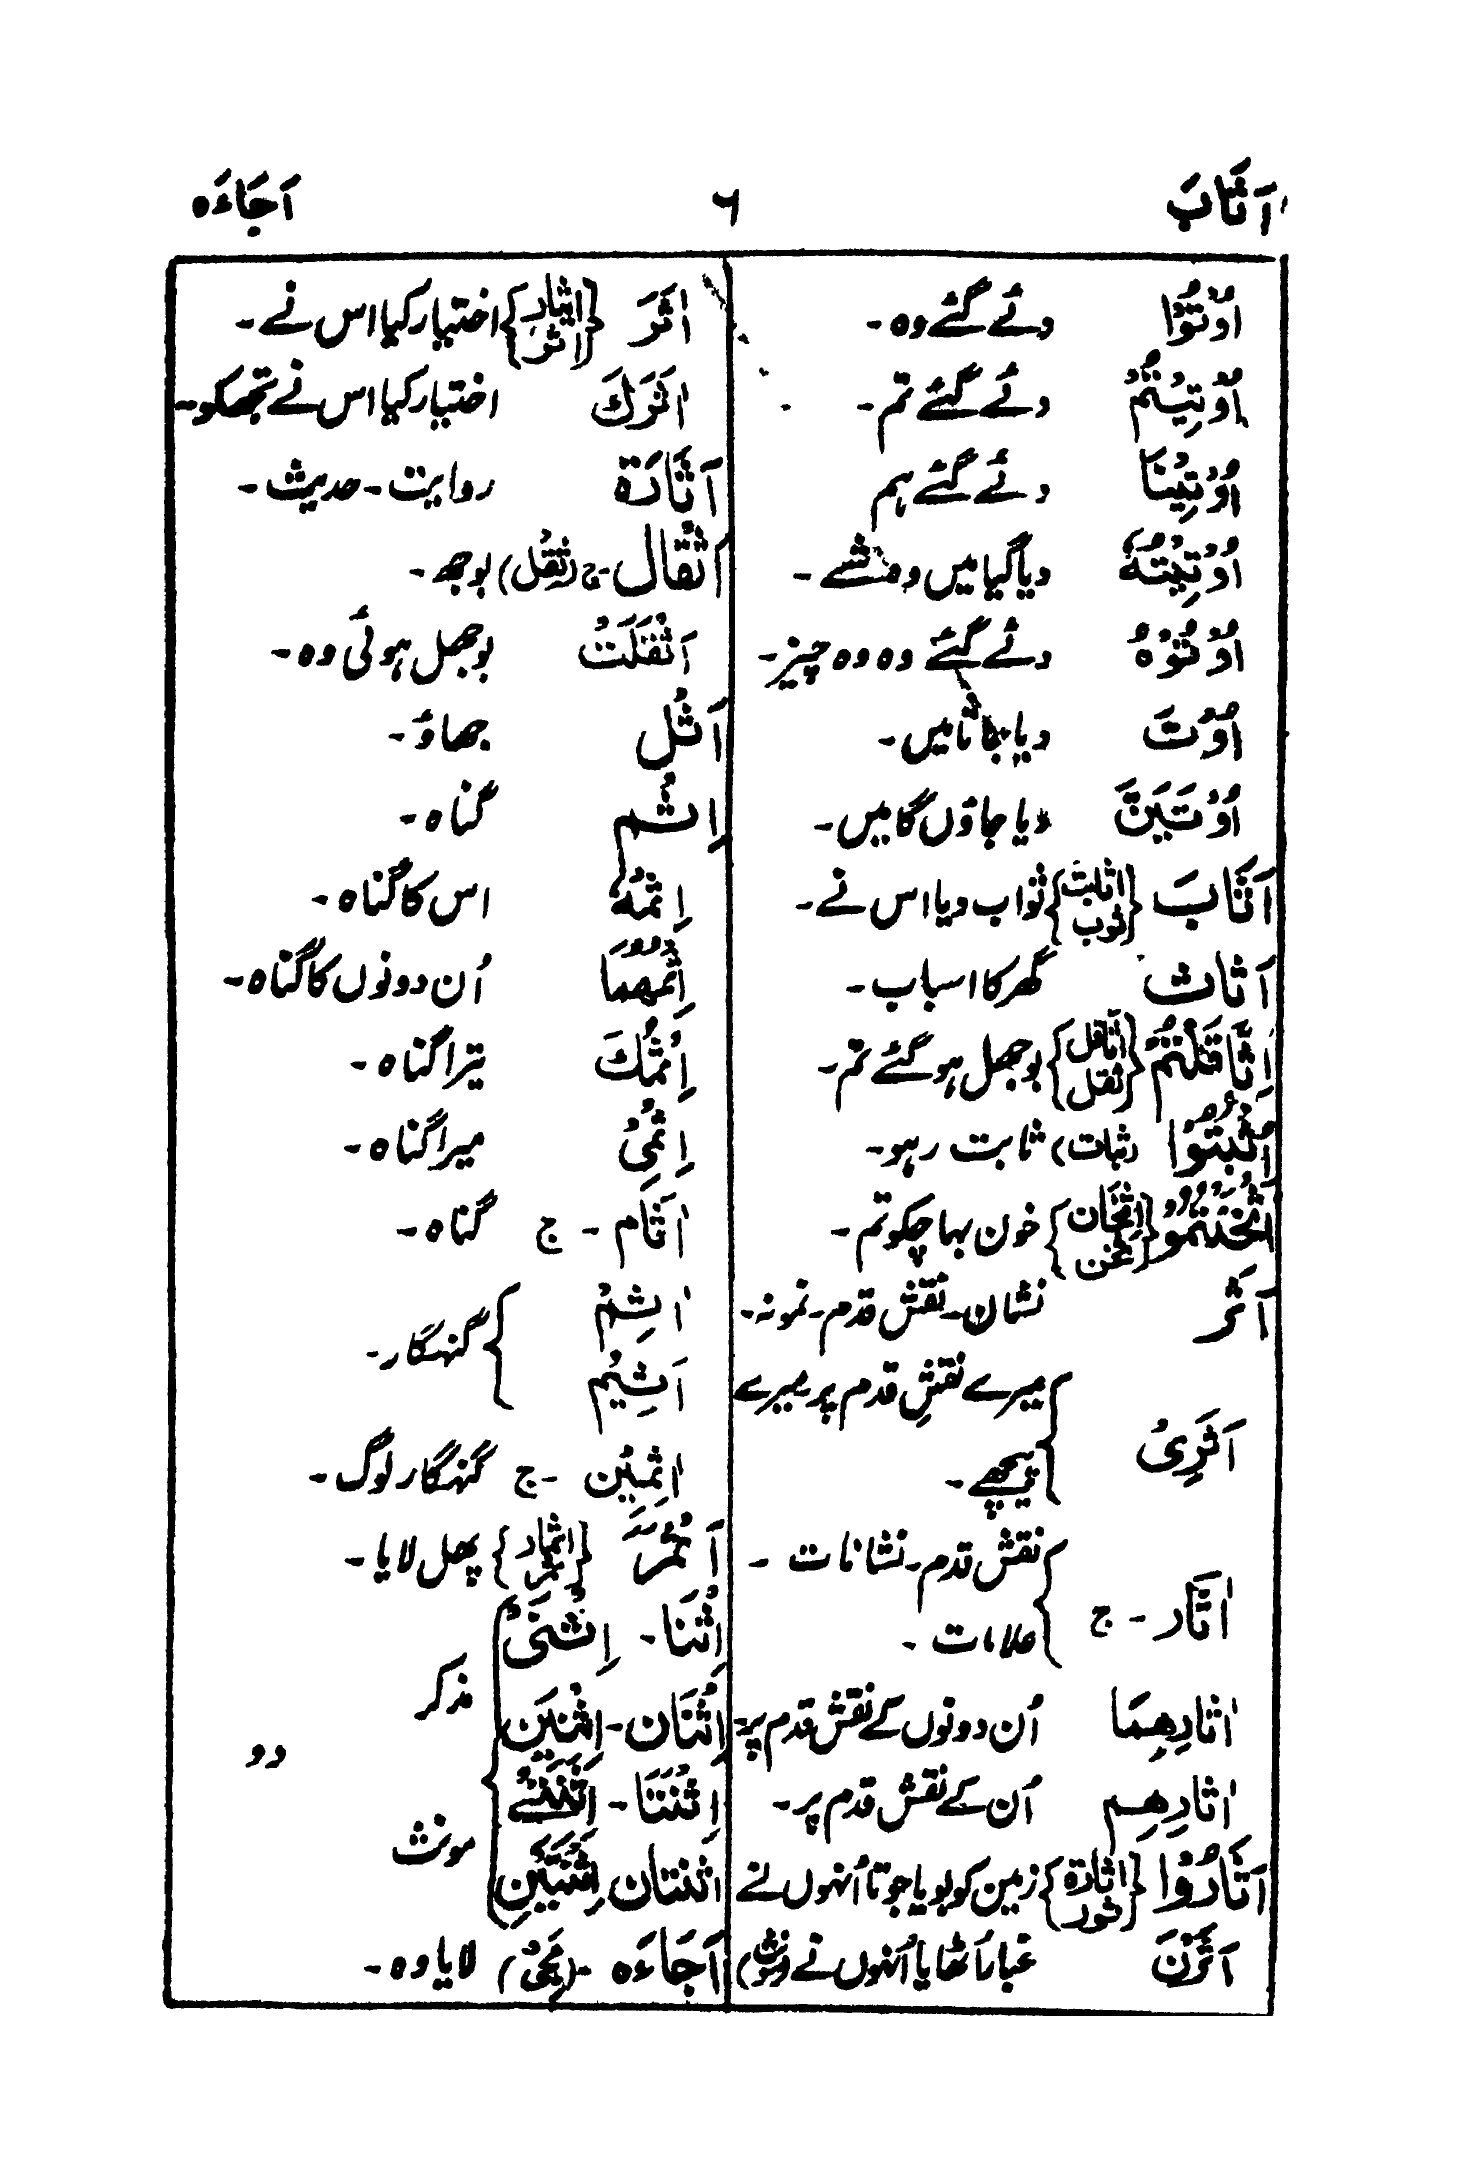 اَثَابَ ۶ اَجَاءَہ
اُوْتُوْا دئے گئے وہ۔
اُوْتِیْتُمْ دئے گئے تم۔
اُوْتِیْنَا دئے گئے ہم
اُوْتِیْتُهٗ دیا گیا میں وہ شے۔
اُوْتُوْهُ دئے گئے وہ وہ چیز۔
اُوْتَ دیا جاتا میں۔
اُوْتَیَنَّ دیا جاؤں گا میں۔
اَثَابَ {اثابت ثوب} ثواب دیا اس نے۔
اَثَاث گھر کا اسباب۔
اِثَّاقَلْتُمْ {اثاقل ثقل} بوجھل ہو گئے تم۔
اُثْبُتُوْا (ثبات) ثابت رہو۔
اَثْخَنْتُمُوْ {اثخان ثخن} خون بہا چکو تم۔
اَثَر نشان۔ نقش قدم۔ نمونہ۔
اَثَرِیْ {میرے نقشِ قدم پر میرے
پیچھے۔
اٰثَار ۔ ج {نقش قدم۔ نشانات ۔
علامات ۔
اٰثارِهِمَا اُن دونوں کے نقش قدم پر۔
اٰثارِهِم اُن کے نقش قدم پر۔
اَثَارُوْا {اثارة ثور} زمین کو بویا جوتا اُنہوں نے
اَثَرْنَ غبار اُٹھایا اُنہوں نے
اٰثَرَ {ایثار اثر} اختیار کیا اس نے۔
اٰثَرَكَ اختیار کیا اس نے تجھکو۔
اَثَارَة روایت۔ حدیث۔
اَثْقَال۔ ج (ثقل) بوجھ۔
اَثْقَلَتْ بوجھل ہوئی وہ۔
اَثْل جھاؤ۔
اِثْم گناہ۔
اِثْمُهٗ اس کا گناہ۔
اِثْمُهُمَا اُن دونوں کا گناہ۔
اِثْمُكَ تیرا گناہ۔
اِثْمِیْ میرا گناہ۔
اٰثَام ۔ ج گناہ۔
اٰثِمْ
اَثِیْم } گنہگار۔
اٰثِمِیْن ۔ ج گنہگار لوگ۔
اَثْمَرَ {اثمار ثمر} پھل لایا۔
اِثْنَا۔ اِثْنَیْ
اِثْنَان۔ اِثْنَیْنِ مذکر
دو
اِثْنَتَا۔ اِثْنَتَے
مونث
اثنتان اِثْنَتَیْنِ
اَجَاءَہ ۔ (مَجِیْ) لایا وہ۔